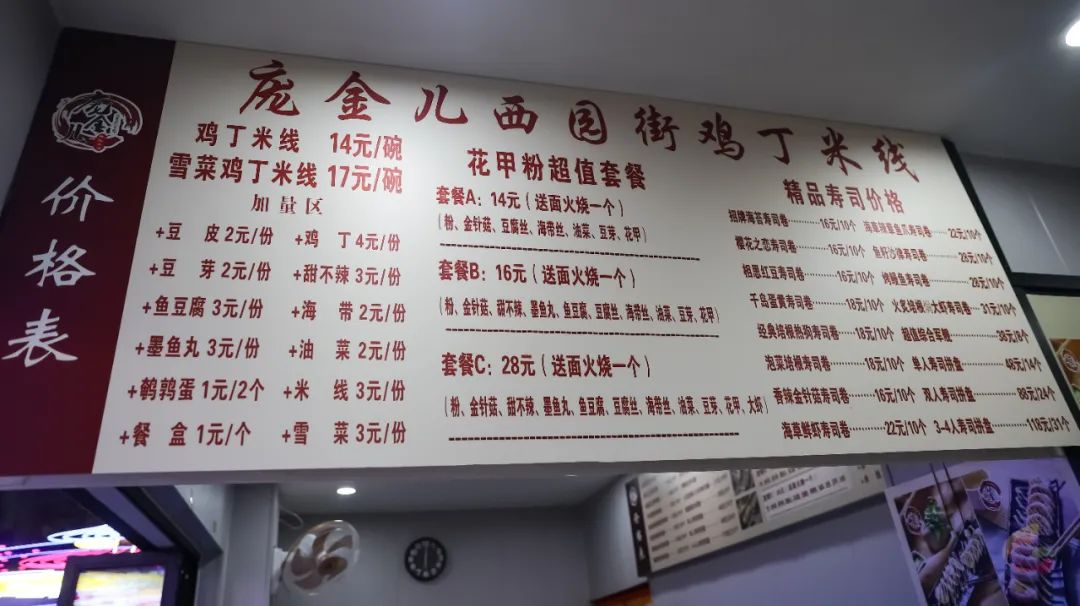 价格表
庞金儿西园街鸡丁米线
鸡丁米线 14元/碗
雪菜鸡丁米线 17元/碗
加量区
+豆 皮 2元/份 +鸡 丁 4元/份
+豆 芽 2元/份 +甜不辣 3元/份
+鱼豆腐 3元/份 +海 带 2元/份
+墨鱼丸 3元/份 +油 菜 2元/份
+鹌鹑蛋 1元/2个 +米 线 3元/份
+餐 盒 1元/个 +雪 菜 3元/份
花甲粉超值套餐
套餐A：14元（送面火烧一个）
（粉、金针菇、豆腐丝、海带丝、油菜、豆芽、花甲）
套餐B：16元（送面火烧一个）
（粉、金针菇、甜不辣、墨鱼丸、鱼豆腐、豆腐丝、海带丝、油菜、豆芽、花甲）
套餐C：28元（送面火烧一个）
（粉、金针菇、甜不辣、墨鱼丸、鱼豆腐、豆腐丝、海带丝、油菜、豆芽、花甲、大虾）
精品寿司价格
招牌海苔寿司卷 16元/10个 22元/10个
樱花之恋寿司卷 16元/10个 鱼籽沙律寿司卷 26元/10个
相思红豆寿司卷 16元/10个 烤鳗鱼寿司卷 26元/10个
千岛蛋黄寿司卷 18元/10个 31元/10个
经典培根热狗寿司卷 18元/10个 超值综合军舰 38元/6个
泡菜培根寿司卷 18元/10个 单人寿司拼盘 48元/14个
香辣金针菇寿司卷 16元/10个 双人寿司拼盘 88元/24个
海草鲜虾寿司卷 22元/10个 3-4人寿司拼盘 118元/31个